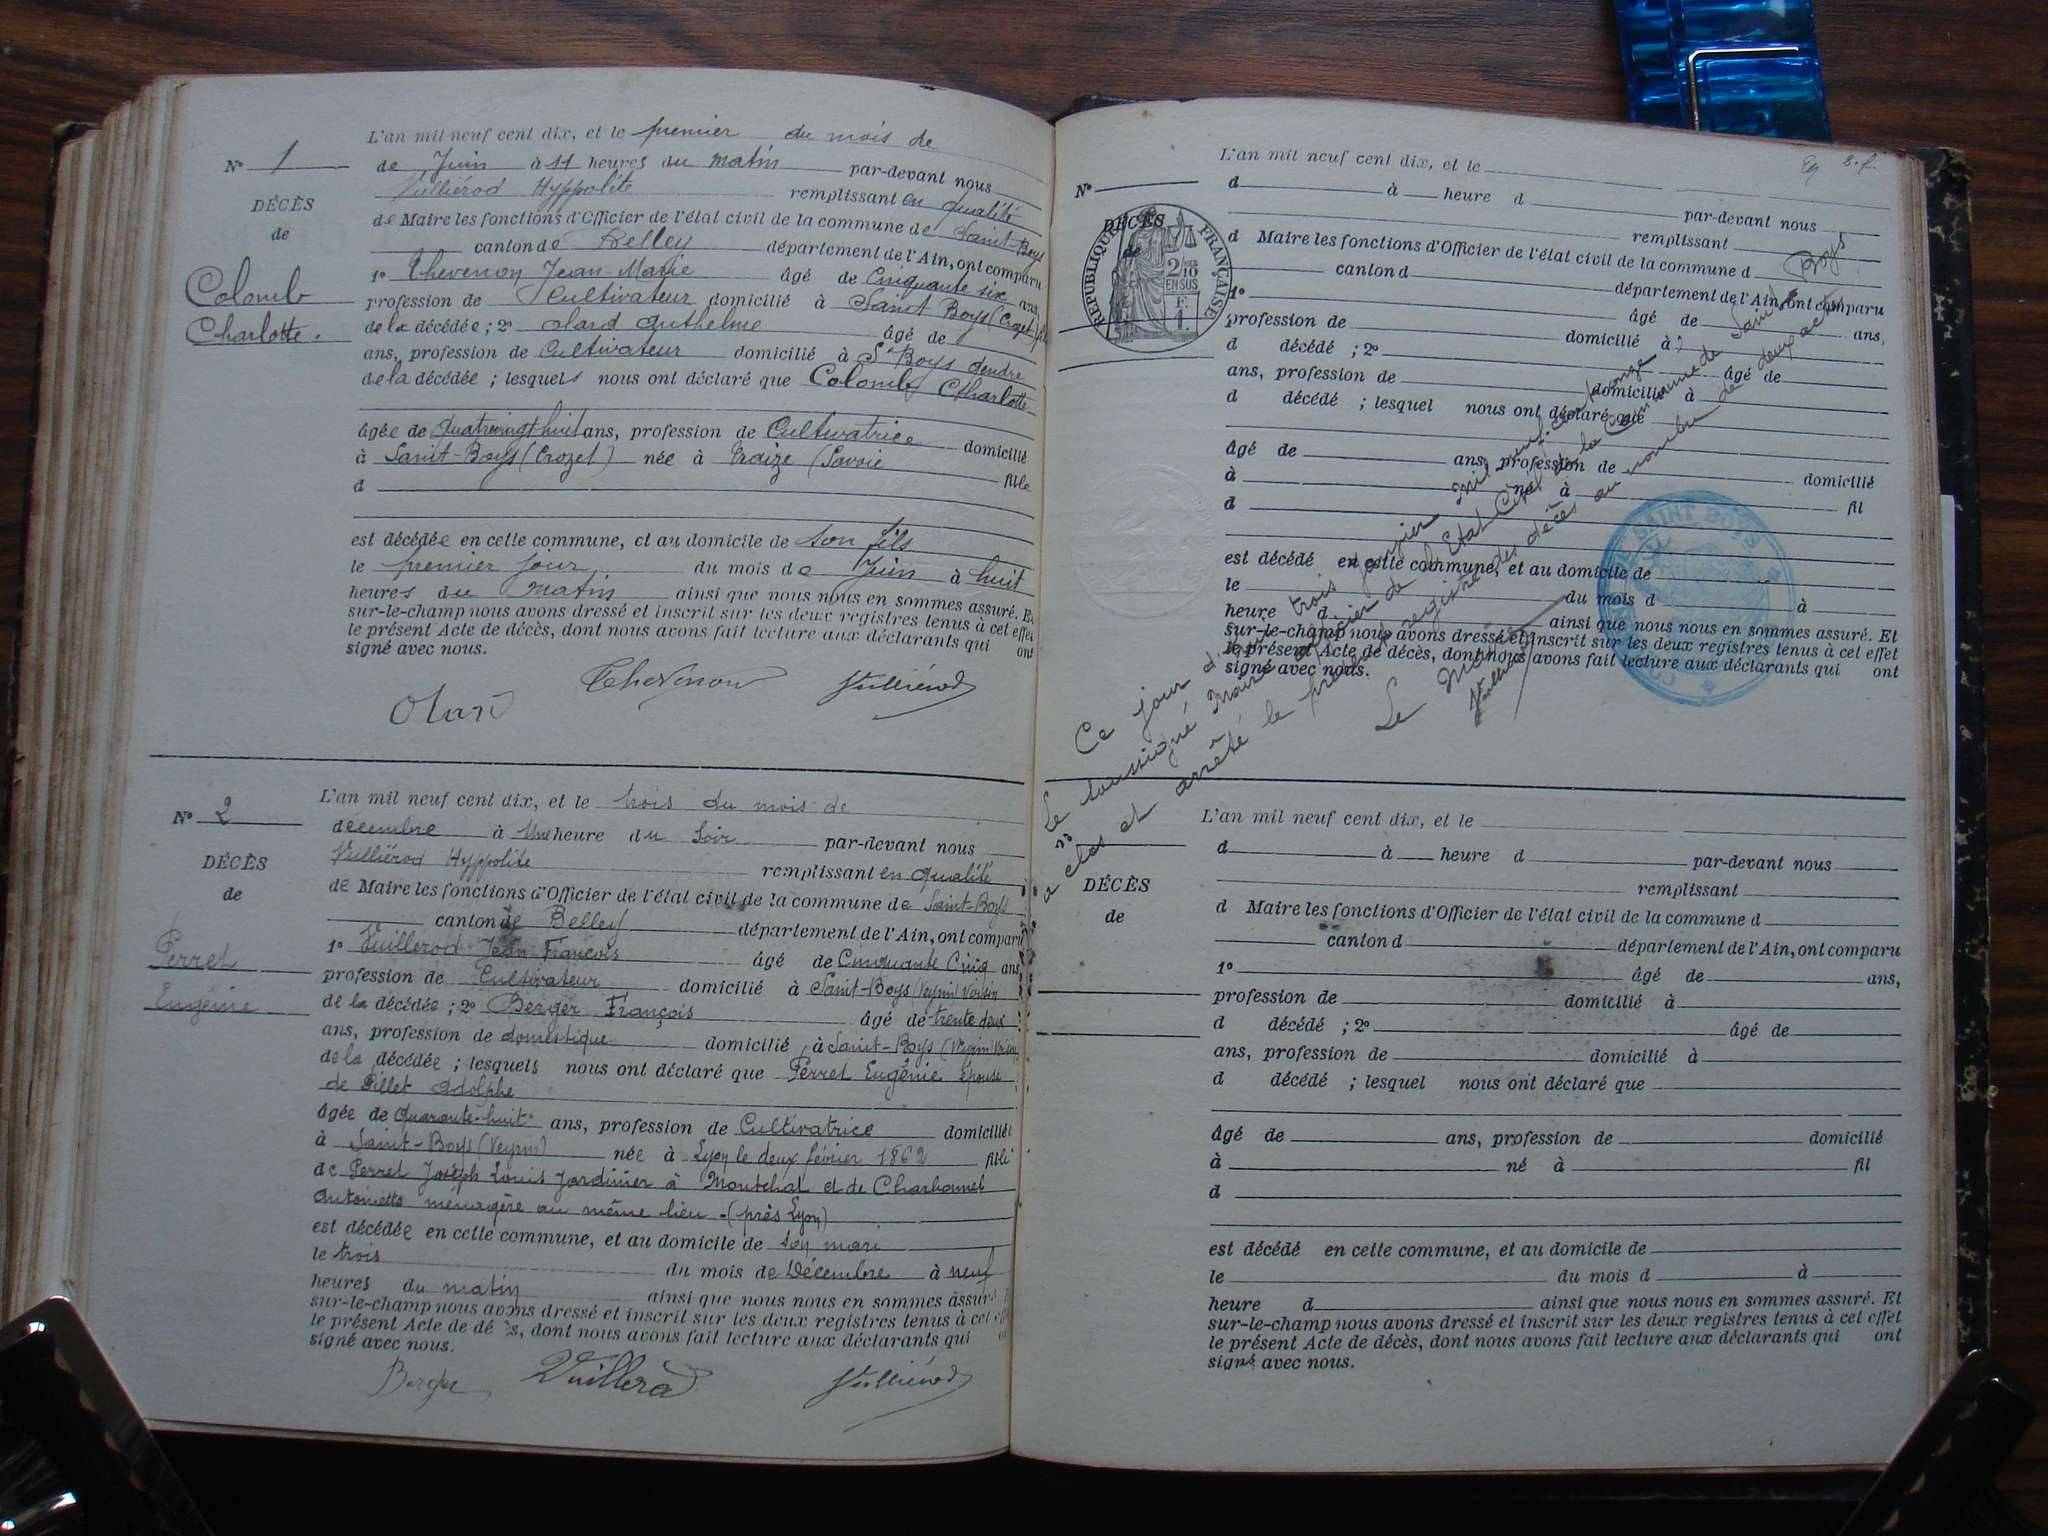 L'an mil neuf cent dix, et le premier du mois de
N° 1 de Juin à 11 heures du matin par-devant nous
Vulliérod Hyppolite remplissant en qualité
DÉCÈS
de Maire les fonctions d'Officier de l'état civil de la commune de Saint-Boys
de
canton de Belley département de l'Ain, ont comparu
1° Thevenon Jean-Marie âgé de Cinquante six ans,
Colomb
profession de Cultivateur domicilié à Saint Boys (Crozet) fils
Charlotte.
de la décédée ; 2° olard Anthelme âgé de
ans, profession de Cultivateur domicilié à St Boys Gendre
de la décédée ; lesquels nous ont déclaré que Colomb Charlotte
âgée de Quatrevingt huit ans, profession de Cultivatrice domicilié
à Saint-Boys (Crozet) née à Traize (Savoie fille
d
est décédée en cette commune, et au domicile de son fils
le premier jour du mois de Juin à huit
heures du Matin ainsi que nous nous en sommes assuré. Et
sur-le-champ nous avons dressé et inscrit sur les deux registres tenus à cet effet
le présent Acte de décès, dont nous avons fait lecture aux déclarants qui ont
signé avec nous.
Thevenon Vulliérod
Olard
L'an mil neuf cent dix, et le trois du mois de
N° 2
décembre à Une heure du Soir par-devant nous
Vulliérod Hyppolite remplissant en qualité
DÉCÈS
de Maire les fonctions d'Officier de l'état civil de la commune de Saint-Boys
de
canton de Belley département de l'Ain, ont comparu
1° Vuillerod Jean François âgé de Cinquante Cinq ans
Perret
profession de Cultivateur domicilié à Saint-Boys (Veyrin) Voisin
Eugénie
de la décédée ; 2° Berger François âgé de trente deux
ans, profession de domestique domicilié à Saint-Boys (Veyrin) Voisin
de la décédée ; lesquels nous ont déclaré que Perret Eugénie Epouse
de Pillet Adolphe
âgée de Quarante-huit ans, profession de Cultivatrice domicilié
à Saint-Boys (Veyrin) née à Lyon le deux février 1862 fille
de Perret Joseph Louis Jardinier à Montchat et de Charbonnet
Antoinette menagère au même lieu - (près Lyon)
est décédée en cette commune, et au domicile de son mari
le trois du mois de Décembre à neuf
heures du matin ainsi que nous nous en sommes assuré
sur-le-champ nous avons dressé et inscrit sur les deux registres tenus à cet effet
le présent Acte de décès, dont nous avons fait lecture aux déclarants qui
signé avec nous.
Berger Vuillerod Vulliérod
L'an mil neuf cent dix, et le
N°
d à heure d par-devant nous
remplissant
DÉCÈS
RÉPUBLIQUE FRANÇAISE
2/10 EN SUS
F. 1.
d Maire les fonctions d'Officier de l'état civil de la commune d
canton d département de l'Ain, ont comparu
1° âgé de ans,
profession de domicilié à
d décédé ; 2° âgé de
ans, profession de domicilié à
d décédé ; lesquel nous ont déclaré que
âgé de ans, profession de domicilié
à né à
d fil
est décédé en cette commune, et au domicile de
le du mois d à
heure d ainsi que nous nous en sommes assuré. Et
sur-le-champ nous avons dressé et inscrit sur les deux registres tenus à cet effet
le présent Acte de décès, dont nous avons fait lecture aux déclarants qui ont
signé avec nous.
Ce jour d'hui trois janvier mil neuf cent onze
Le soussigné Maire officier de l'Etat Civil de la Commune de Saint Boys
a clos et arrêté le présent registre des décès au nombre de deux actes
Le Maire
Vulliérod
COMMUNE DE SAINT BOYS
L'an mil neuf cent dix, et le
N°
d à heure d par-devant nous
remplissant
DÉCÈS
d Maire les fonctions d'Officier de l'état civil de la commune d
de
canton d département de l'Ain, ont comparu
1° âgé de ans,
profession de domicilié à
d décédé ; 2° âgé de
ans, profession de domicilié à
d décédé ; lesquel nous ont déclaré que
âgé de ans, profession de domicilié
à né à fil
d
est décédé en cette commune, et au domicile de
le du mois d à
heure d ainsi que nous nous en sommes assuré. Et
sur-le-champ nous avons dressé et inscrit sur les deux registres tenus à cet effet
le présent Acte de décès, dont nous avons fait lecture aux déclarants qui ont
signé avec nous.